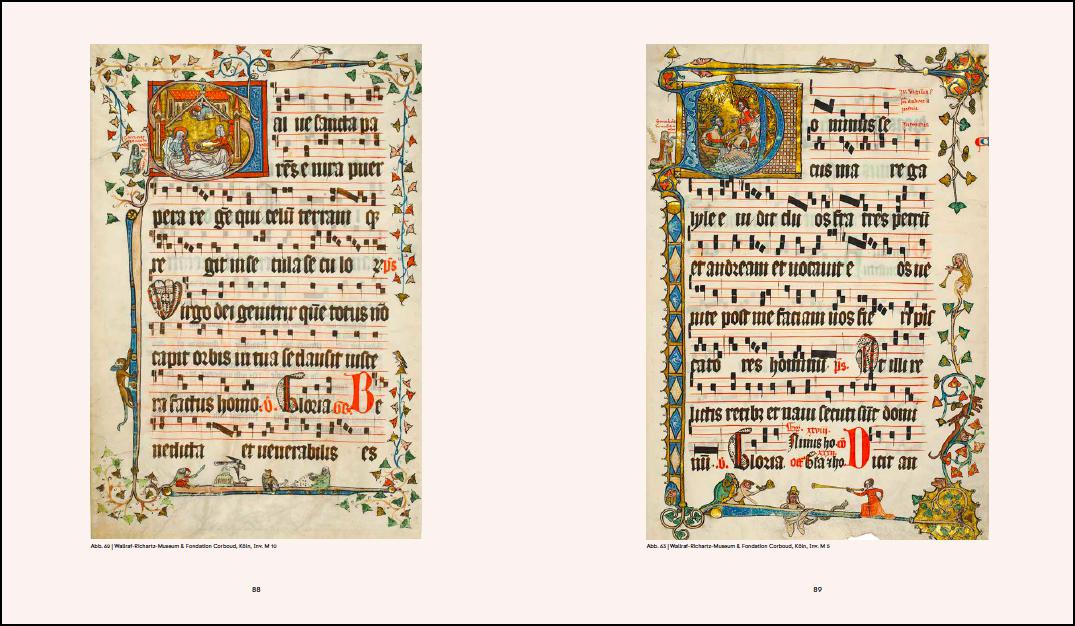 Sal ue sancta pa
rēs e nixa puer
pera re ge qui celū terram q;
re git in se cula se cu lo ps
Virgo dei genitrix quē totus nō
capit orbis in tua se clausit uisce
ra factus homo. v. Gloria Be
nedicta et uenerabilis es
Abb. 60 | Wallraf-Richartz-Museum & Fondation Corboud, Köln, Inv. M 10
88
Do minus se
cus ma re ga
lyle e ui dit du os fra tres petrū
et andream et uocauit e os ue
nite post me faciam uos fie ri pis
cato res hominū ps. At illi re
lictis retibz et naui secuti sūt domi
xxviii
nū. v. Gloria Nimis ho Dicit an
Abb. 63 | Wallraf-Richartz-Museum & Fondation Corboud, Köln, Inv. M 5
89